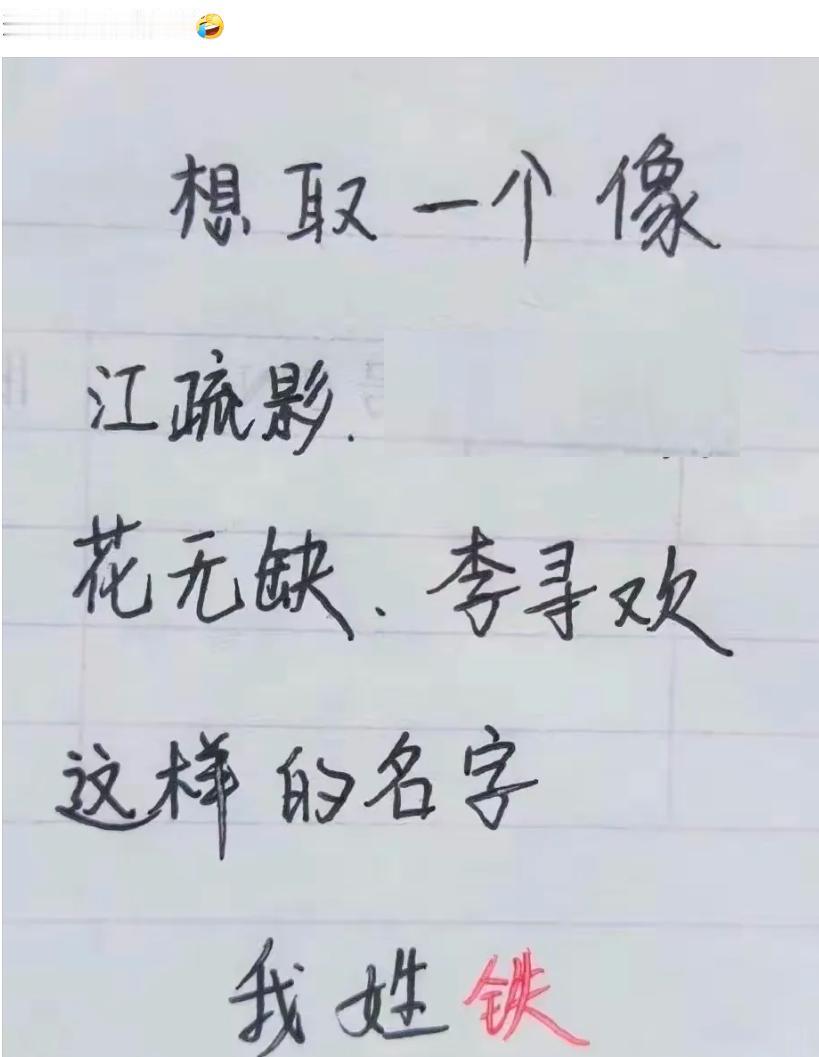 想取一个像
江疏影、
花无缺、李寻欢
这样的名字
我姓铁